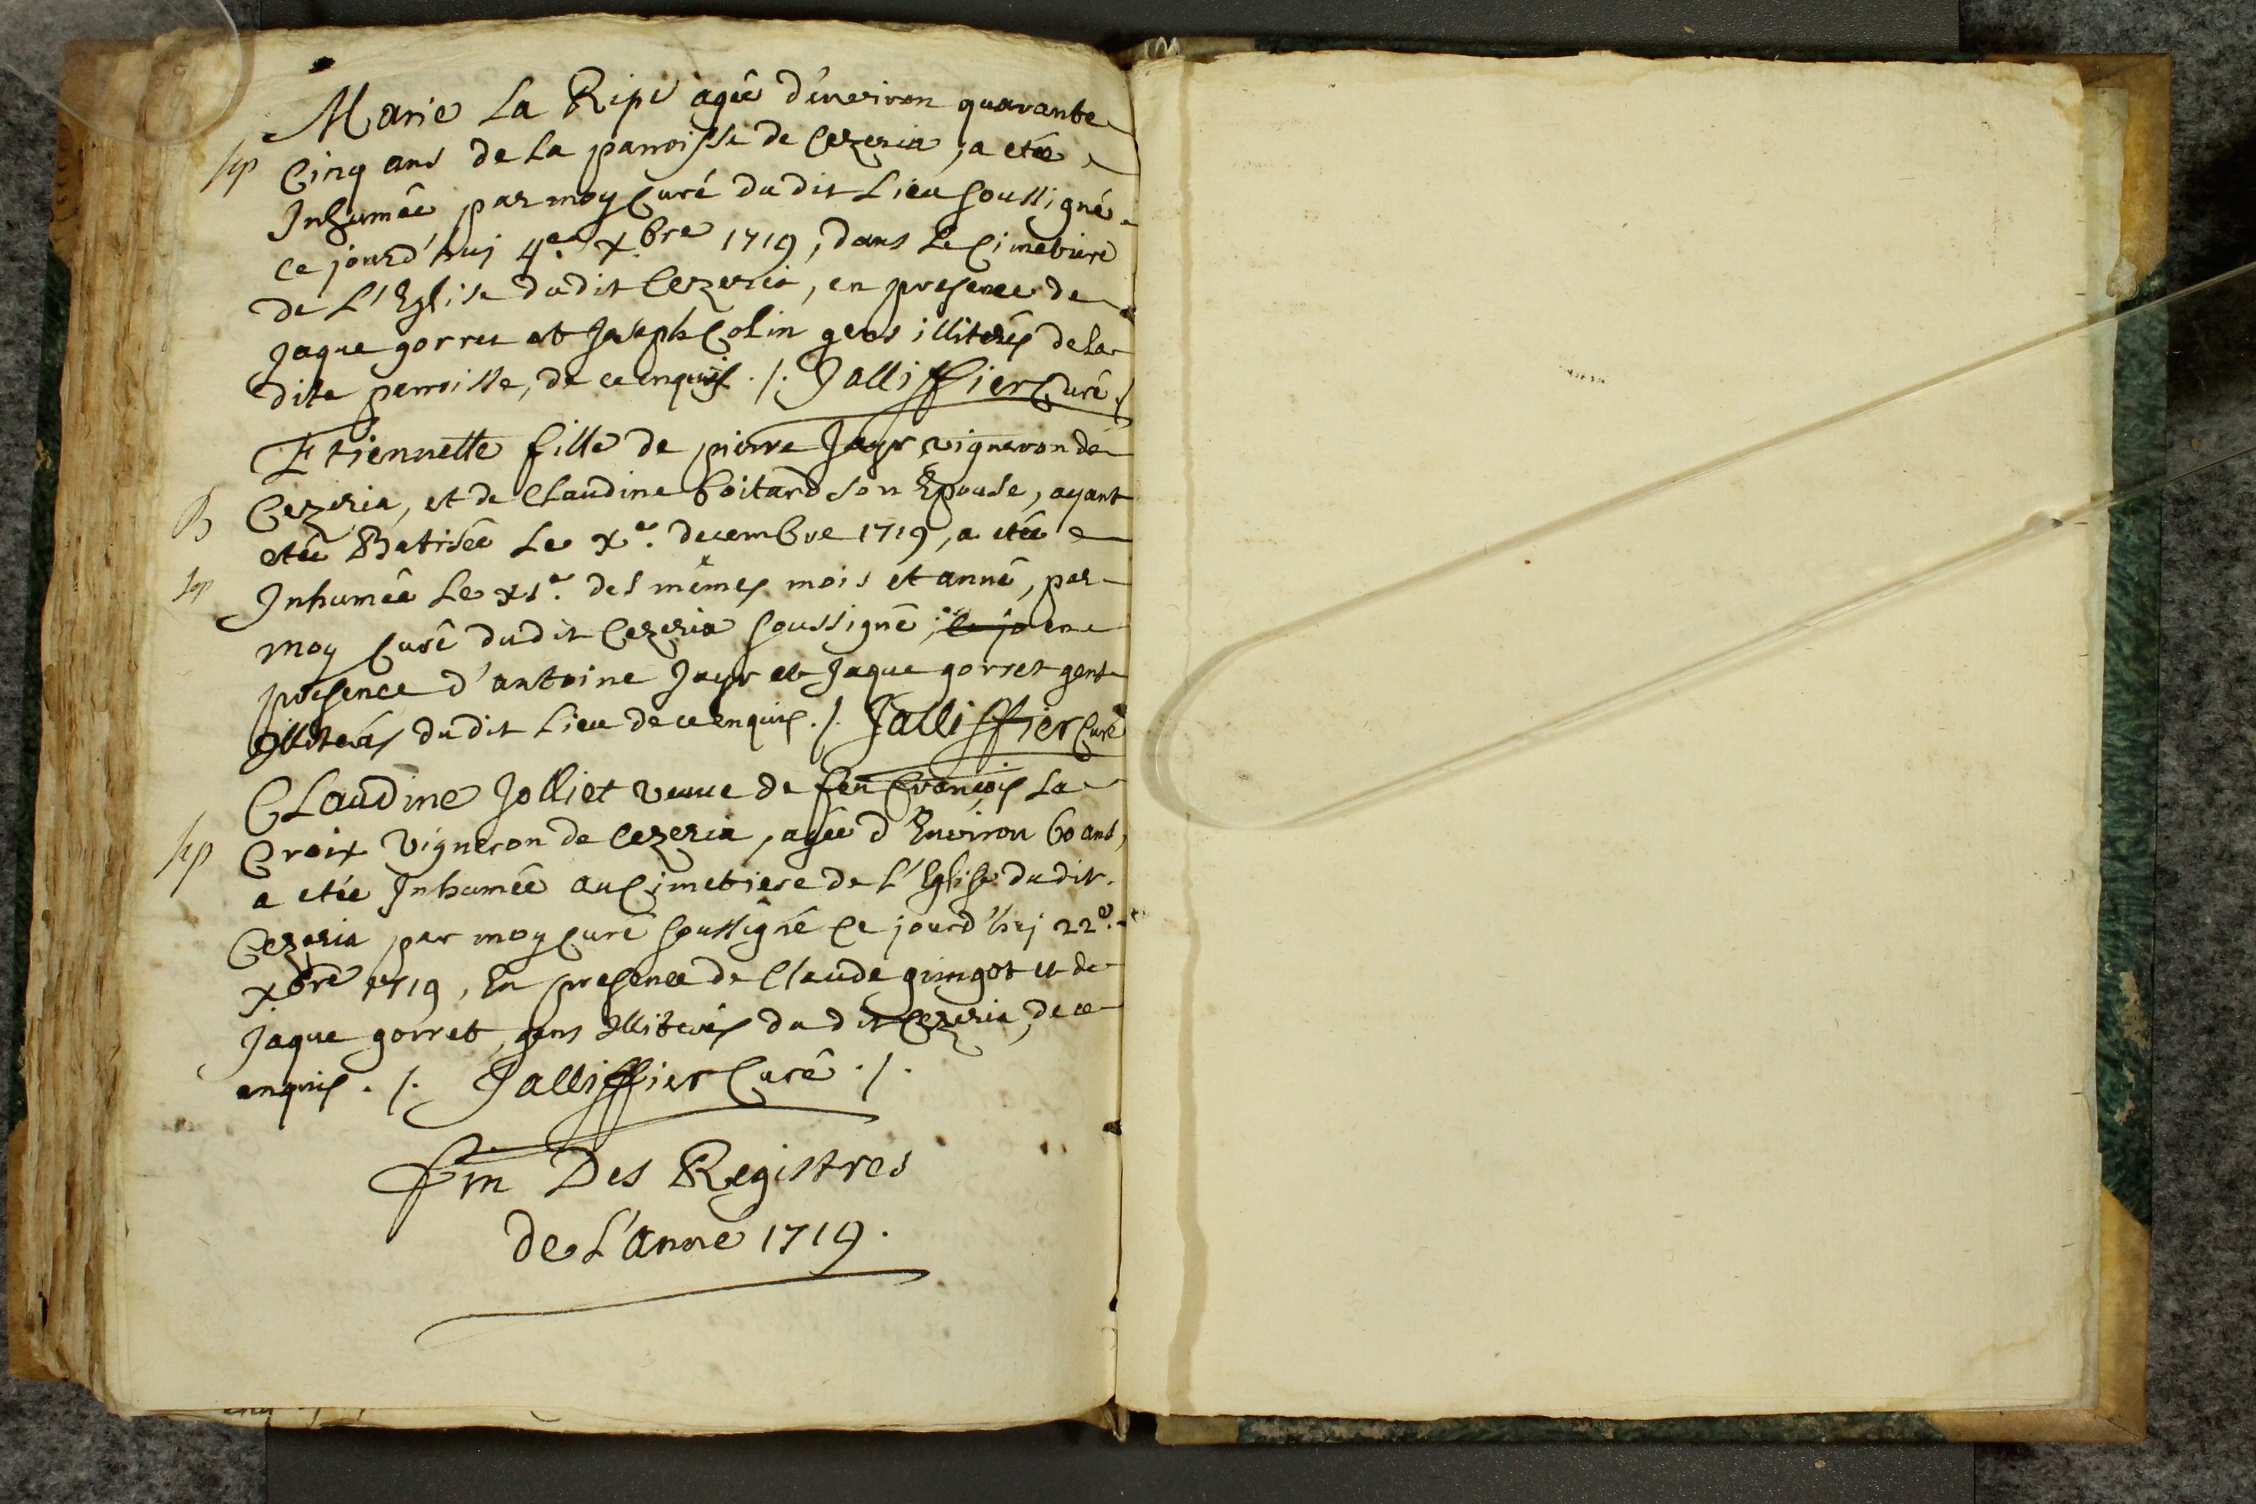 Marie La Ripe agée d'environ quarante
sep Cinq ans de La parroisse de Cezeria, a etée
Inhumée par moy Curé du dit Lieu soussigné
ce jourd'huj 4e. Xbre 1719, dans Le Cimetiere
de L'Eglise du dit Cezeria, en presence de
Jaque gorret et Joseph Colin gens illiterés de la
dite parroisse, de ce enquis ./. Jalliffier Curé ./
Etiennette fille de pierre Jayr vigneron de
B Cezeria, et de Claudine Coitard son Epouse, ayant
etée Batisée Le Xe. decembre 1719, a etée
sep Inhumée Le XIe. des mêmes mois et anné, par
moy Curé du dit Cezeria soussigné, ce jo en
presence d'antoine Jayr et Jaque gorret gens
illiterés du dit Lieu de ce enquis ./. Jalliffier Curé
CLaudine Jolliet veuve de feu francois La
sep Croix vigneron de Cezeria, agée d'Environ 60 ans,
a etée Inhumée au Cimetiere de L'Eglise du dit
Cezeria par moy Curé soussigné Ce jourd'huj 22e.
Xbre 1719, En presence de Claude gringot et de
Jaque gorret, gens illiterés du dit Cezeria, de ce
enquis ./. Jalliffier Curé ./.
Fin Des Registres
de L'anné 1719.